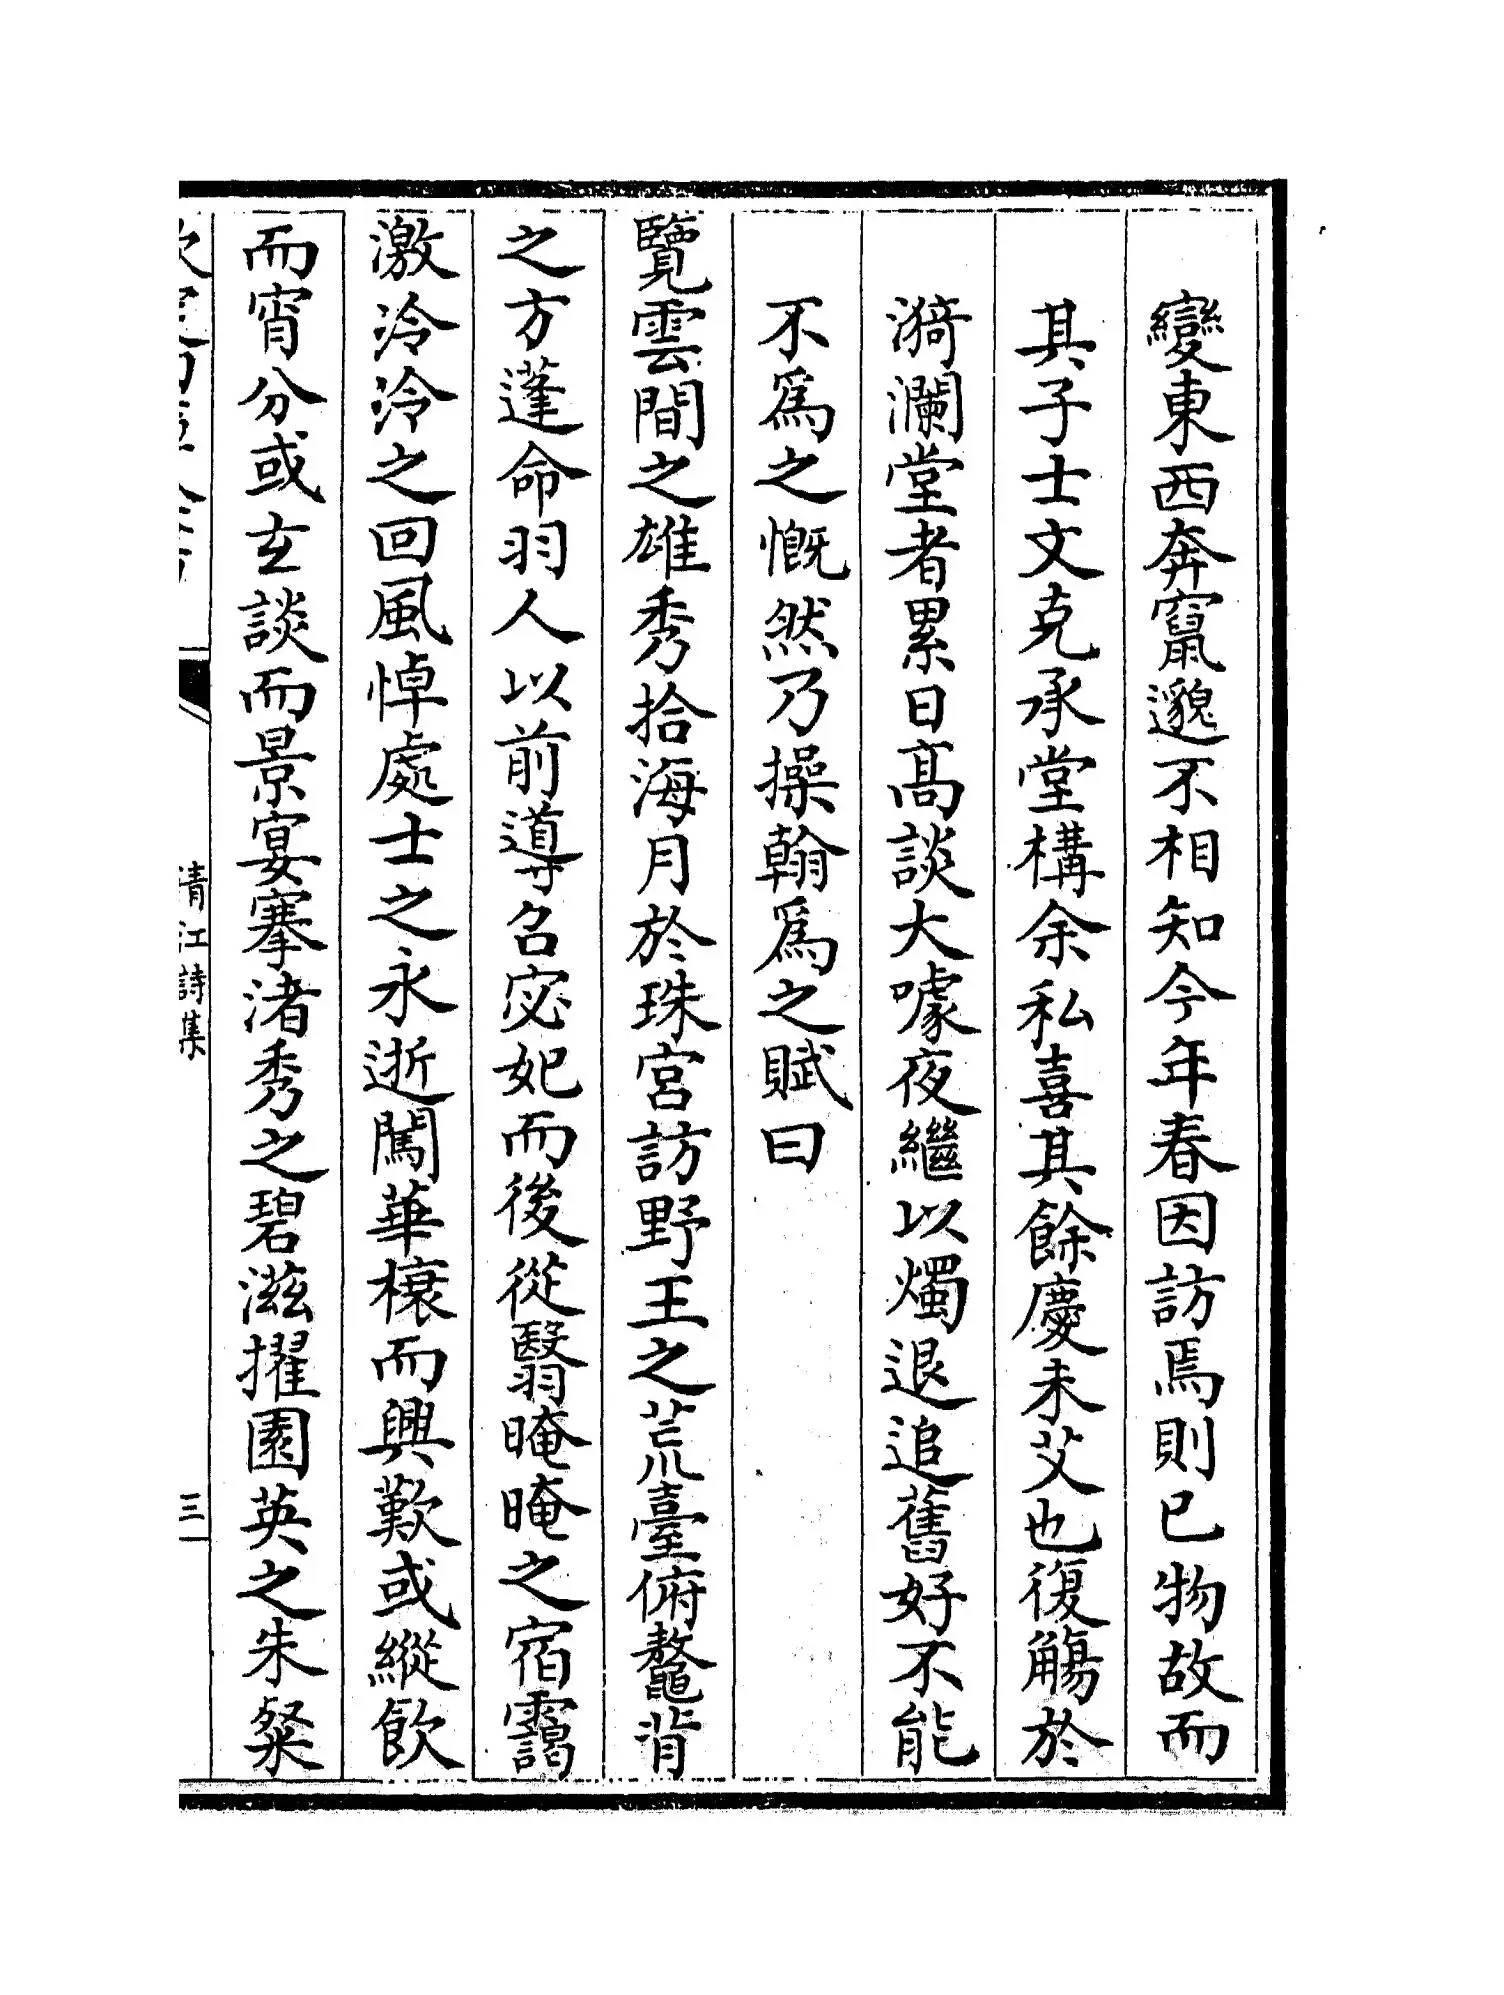 變東西奔竄邈不相知今年春因訪焉則已物故而
其子士文克承堂構余私喜其餘慶未艾也復觴於
漪瀾堂者累日髙談大噱夜繼以燭退追舊好不能
不為之慨然乃操翰為之賦曰
覽雲間之雄秀拾海月於珠宫訪野王之荒臺俯鼇背
之方蓬命羽人以前導召宓妃而後從翳晻晻之宿靄
激泠泠之回風悼處士之永逝闖華榱而興歎或縱飲
而宵分或玄談而景宴搴渚秀之碧滋擢園英之朱粲
清江詩集
三